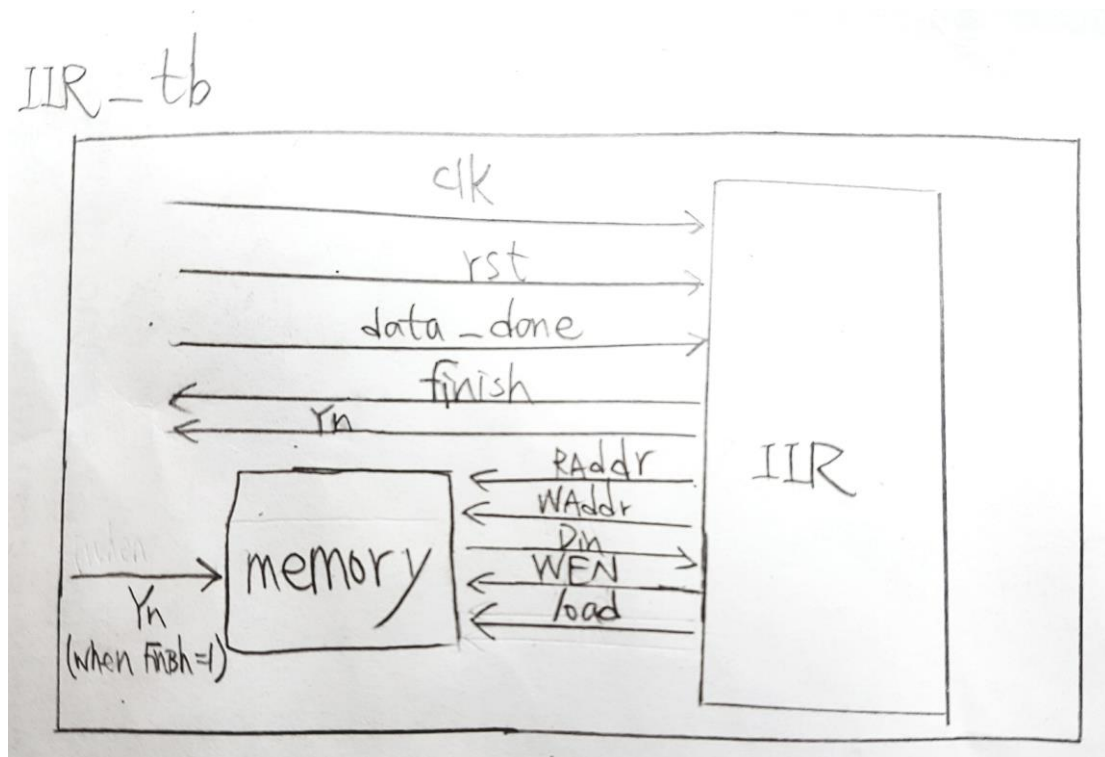 IIR_tb
clk
rst
data_done
finish
Yn
RAddr
WAddr
Din
WEN
load
IIR
memory
Yn
(when Finish=1)